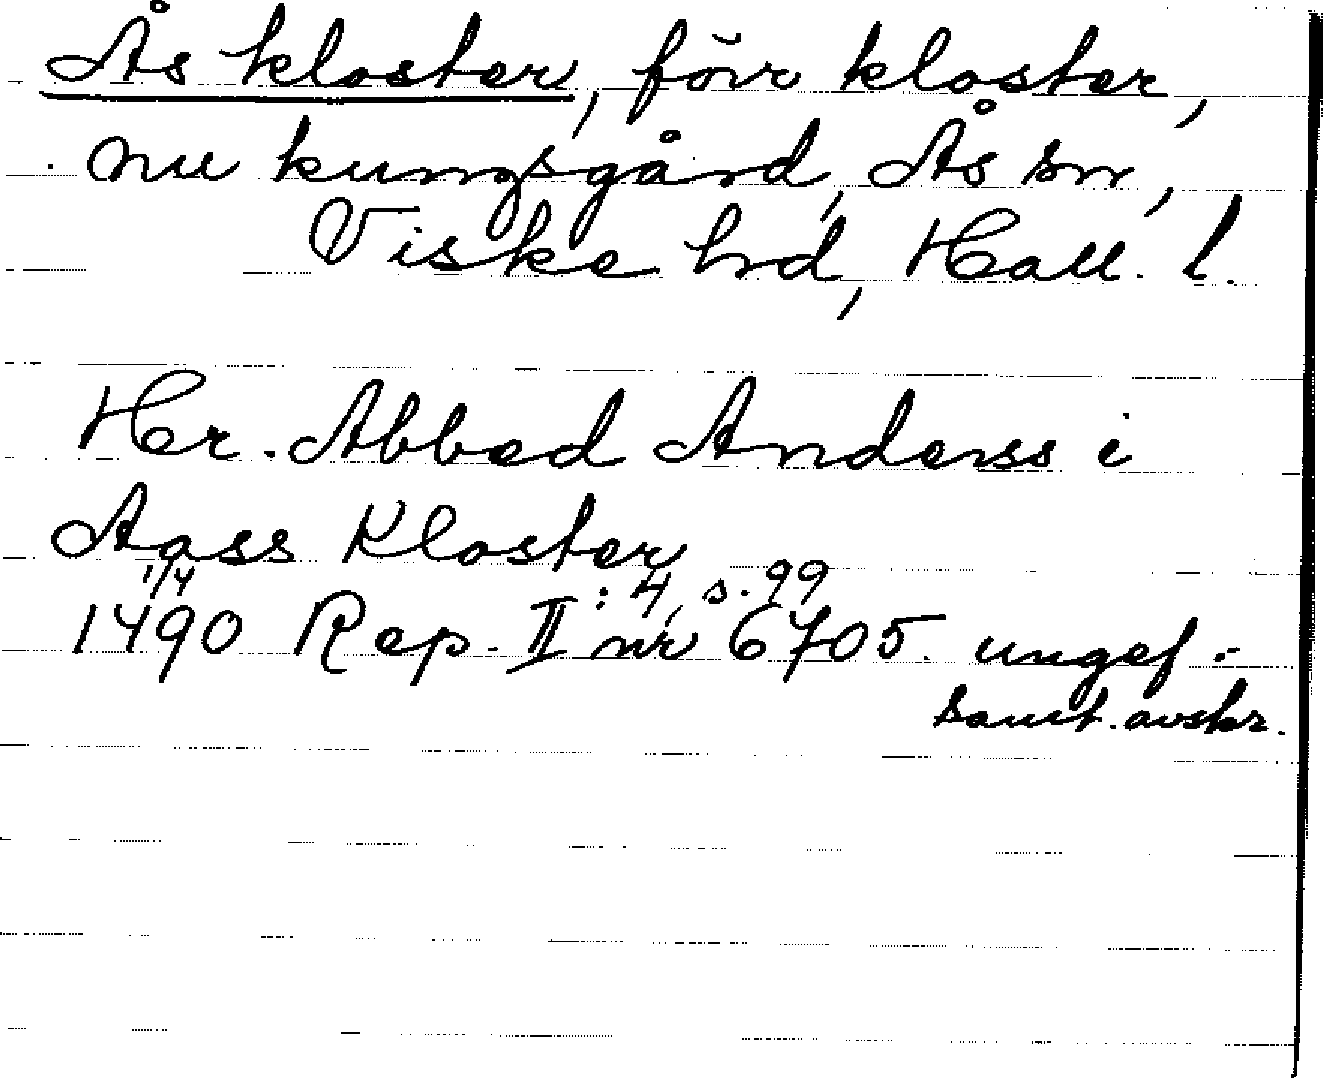 Ås kloster, förr kloster,
nu kungsgård, Ås sn,
Viske hd, Hall. l.
Her. Abbed Anderss i
Aass Kloster
1/4 : 4, s. 99
1490 Rep. II nr 6705. ungef.
samt. avskr.